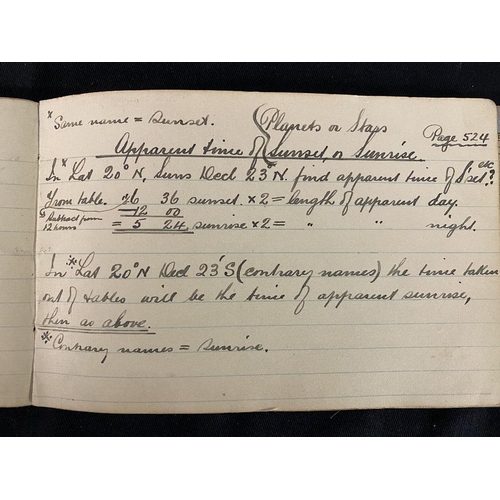 * Same name = Sunset.
Planets or Stars
Page 524
Apparent time of Sunset, or Sunrise.
In * Lat 20° N, Suns Decl 23° N. find apparent time of S'set etc?
From table. 6 36 sunset. ×2 = length of apparent day.
Subtract from 12 hours 12 00
= 5 24 sunrise ×2 = " " night.
In * Lat 20° N Decl 23° S (contrary names) the time taken
out of tables will be the time of apparent sunrise,
then as above.
* Contrary names = Sunrise.